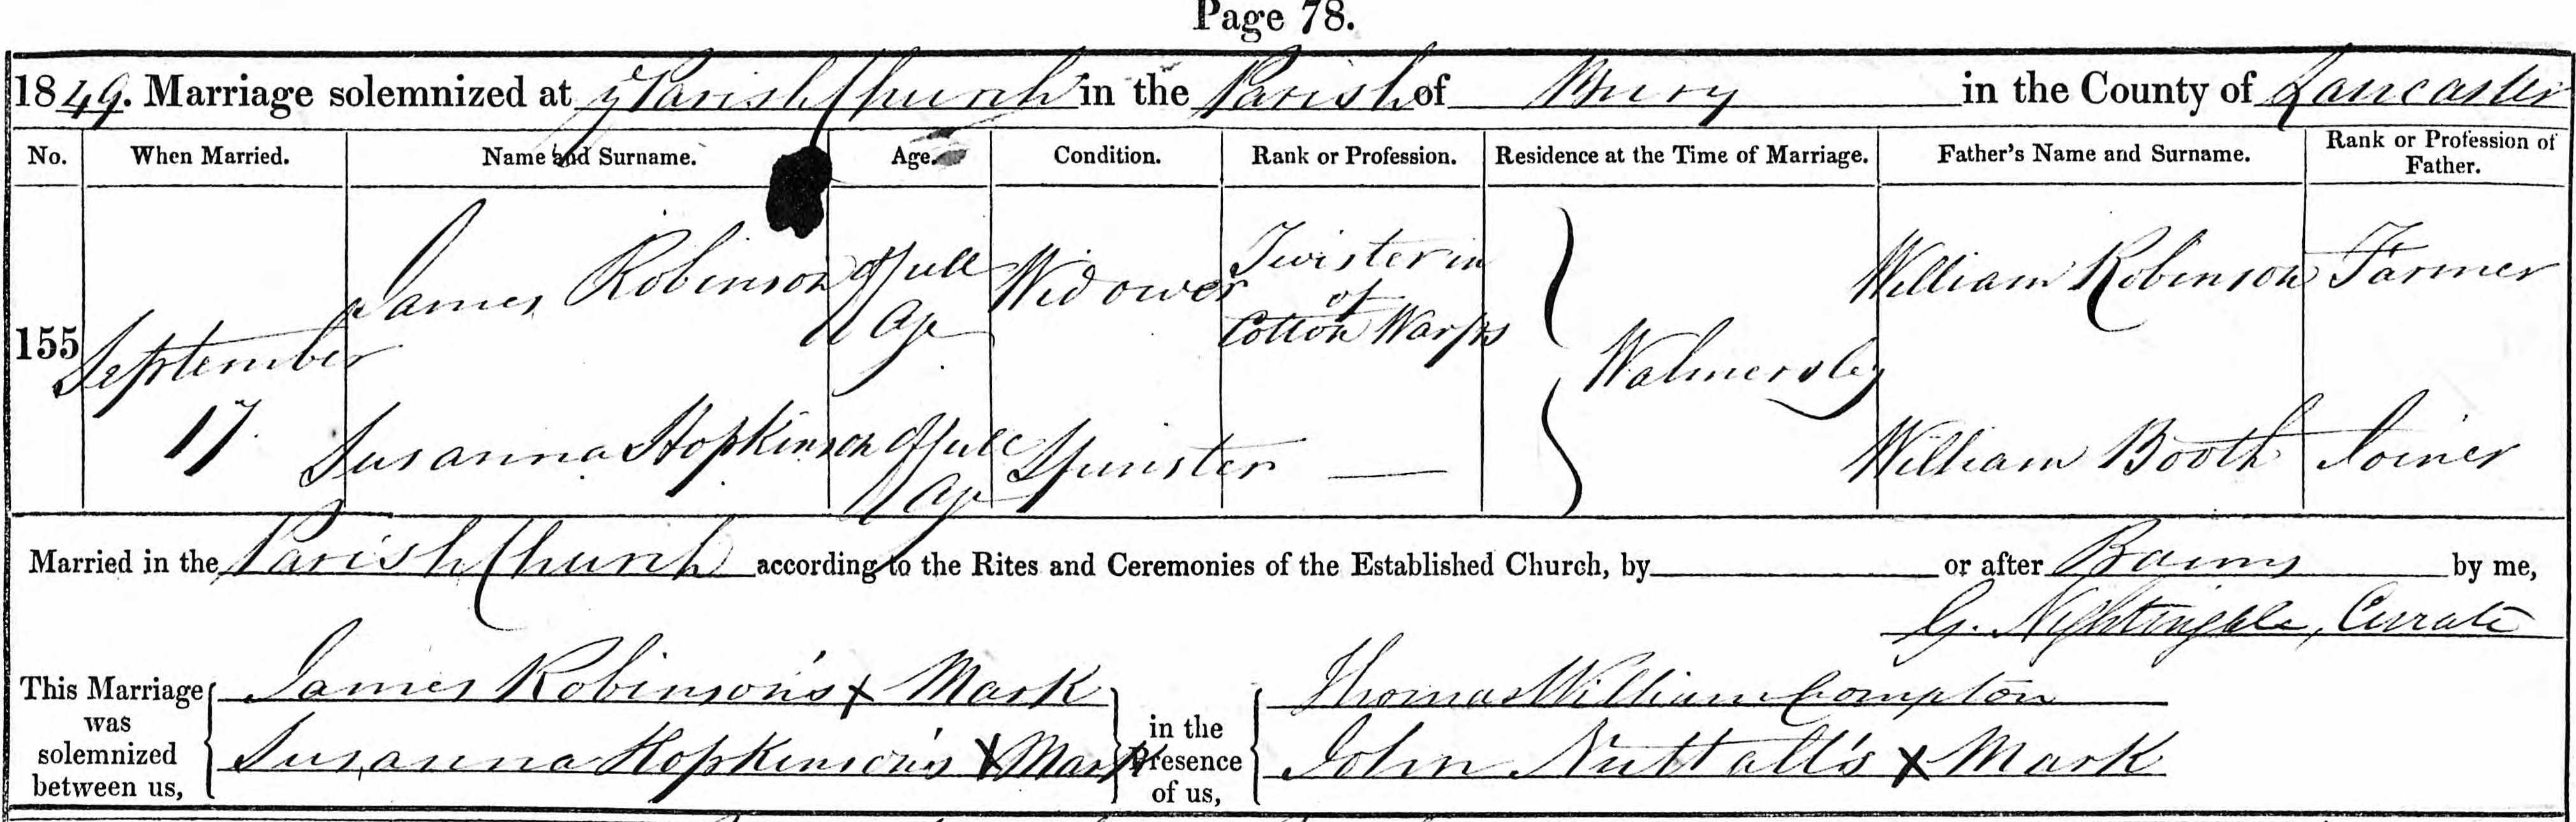 Page 78.
1849. Marriage solemnized at ye Parish Church in the Parish of Bury in the County of Lancaster
No. When Married. Name and Surname. Age. Condition. Rank or Profession. Residence at the Time of Marriage. Father's Name and Surname. Rank or Profession of Father.
155 September 17 James Robinson Of full Age Widower Twister in of Cotton Warps Walmersley William Robinson Farmer
Susanna Hopkinson Of full Age Spinster — William Booth Joiner
Married in the Parish Church according to the Rites and Ceremonies of the Established Church, by or after Banns by me,
G. Nightingale, Curate
This Marriage was solemnized between us, James Robinson's X Mark in the Presence of us, Thomas William Compton
Susanna Hopkinson's X Mark John Nuttall's X Mark